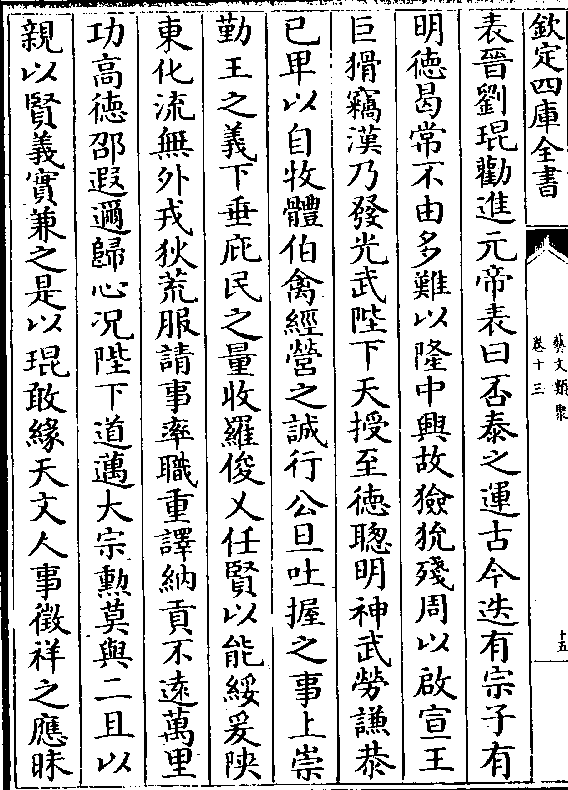 欽定四庫全書
藝文類聚
卷十三
十五
表晉劉琨勸進元帝表曰否泰之運古今迭有宗子有
明徳曷常不由多難以隆中興故獫狁殘周以啟宣王
巨猾竊漢乃發光武陛下天授至徳聰明神武勞謙恭
已卑以自牧體伯禽經營之誠行公旦吐握之事上崇
勤王之義下垂庇民之量收羅俊乂任賢以能綏爰陜
東化流無外戎狄荒服請事率職重譯納貢不逺萬里
功高徳邵遐邇歸心况陛下道邁大宗勲莫與二且以
親以賢義實兼之是以琨敢緣天文人事徵祥之應昧